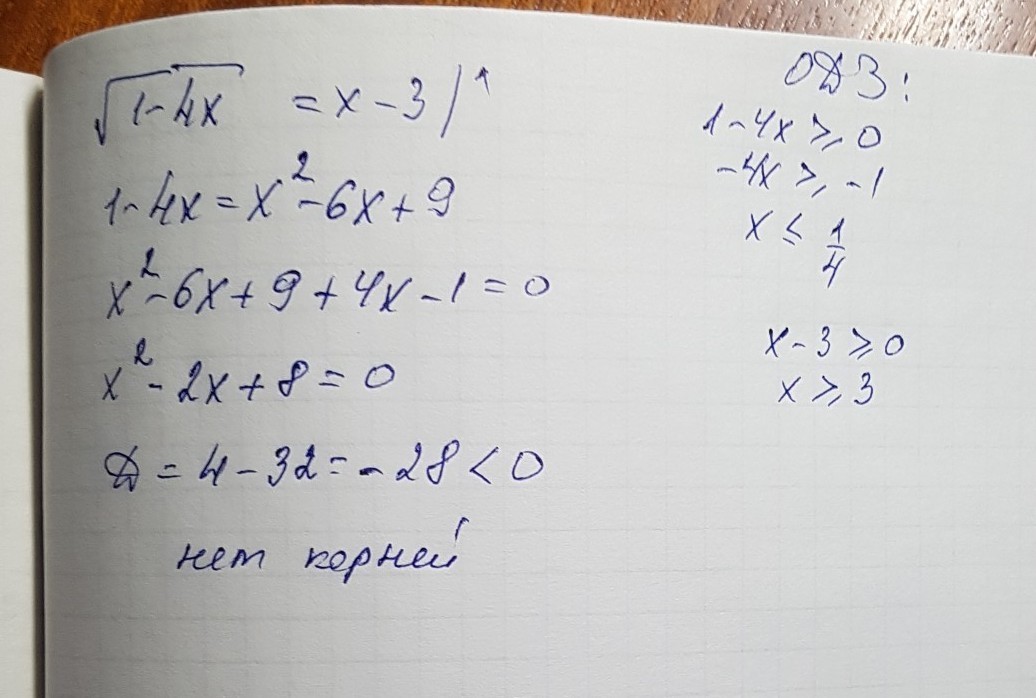 √1-4x = x-3 |↑
1-4x = x²-6x+9
x²-6x+9+4x-1=0
x²-2x+8=0
Д = 4-32 = -28 < 0
нет корней
ОДЗ:
1-4x ≥ 0
-4x ≥ -1
x ≤ 1/4
x-3 ≥ 0
x ≥ 3